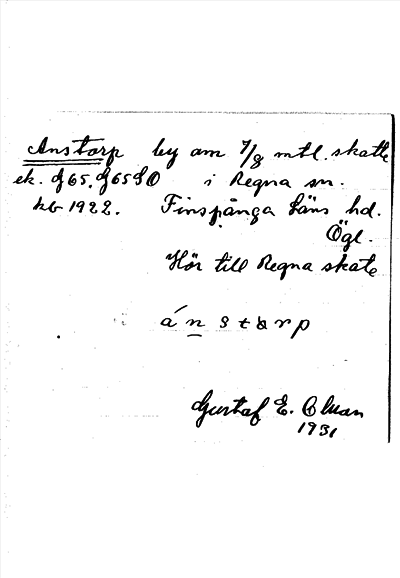 Anstorp by om 7/8 mtl. skatte
ek. J65. J65SO i Regna sn.
kb 1922. Finspånga läns hd.
Ögl.
Hör till Regna skate
á n s t a r p
Gustaf E. Olsson
1931